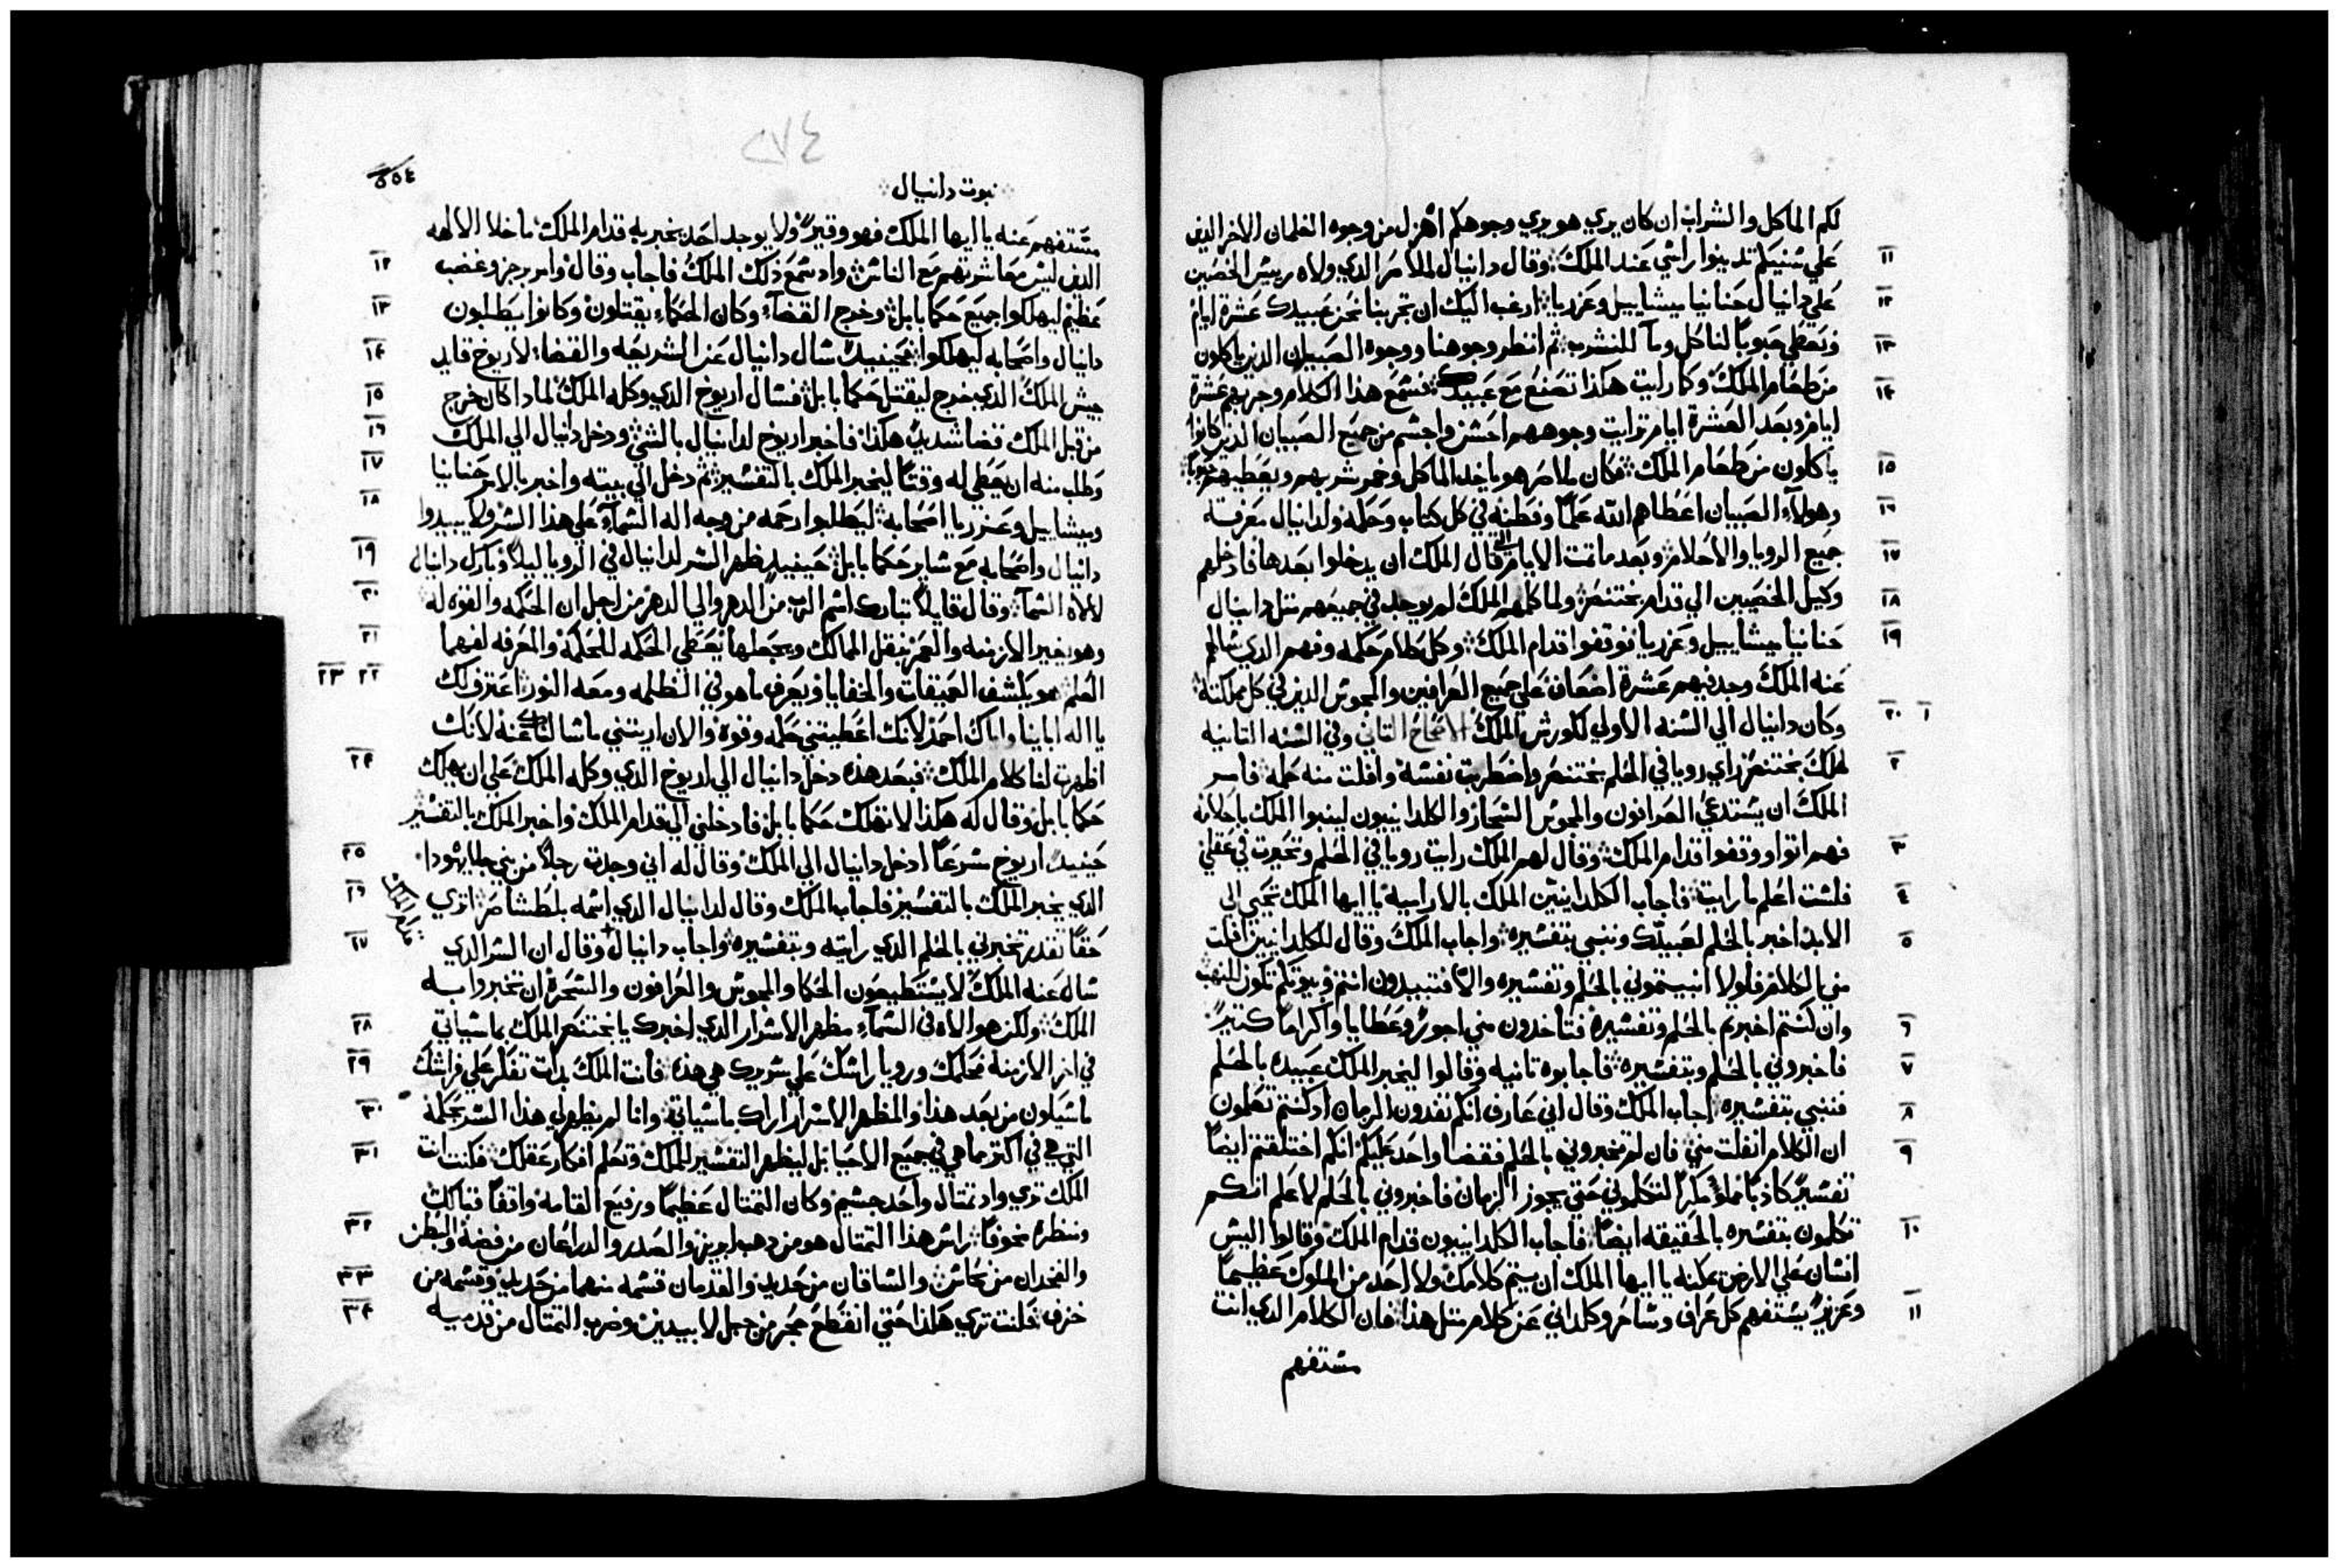 لكم الماكل والشراب ان كان يري هو يري وجوهكم اهزل من وجوه الغلمان الاخر الذين
١١ علي سنيكم تدينوا راسي عند الملك وقال دانيال لملاصر الدي ولاه رييس الخصيين
١٢ علي دانيال حنانيا ميشاييل وعزريا ارغب اليك ان تجربنا نحن عبيدك عشرة ايام
١٣ ونعطي حبوبا لناكل وما للنشرب ثم انظر وجوهنا ووجوه الصبيان الذين ياكلون
١٤ من طعام الملك وكما رايت هكذا تصنع مع عبيدك فسمع هذا الكلام وجربهم عشرة
ايام وبعد العشرة ايام تراات وجوههم احسن واجسم من جميع الصبيان الذين كانوا
١٥ ياكلون من طعام الملك فكان ملاصر هو ياخد الماكل وخمر شربهم ويعطيهم حبوبا
١٦ وهولاء الصبيان اعطاهم الله علما وفطنه في كل كتاب وحكمه ولدانيال معرفة
١٧ جميع الرويا والاحلام وبعد ما تمت الايام التي قال الملك ان يدخلوا بعدها فادخلهم
١٨ وكيل الخصيين الي قدام بختنصر ولما كلمهم الملك لم يوجد في جميعهم متل دانيال
١٩ حنانيا ميشاييل وعزريا فوقفوا قدام الملك وكل كلام حكمه وفهم الدي سالهم
عنه الملك وجد فيهم عشرة اضعاف علي جميع العرافين والمجوس الذين في كل مملكته
١ ٢٠ وكان دانيال الي السنه الاولي لكورش الملك الاصحاح التاني وفي السنه التانيه
٢ لملك بختنصر راي رويا في الحلم بختنصر واضطربت نفسه وافلت منه حلمه فامر
الملك ان يستدعي العرافون والمجوس السحار والكلدانييون لينبوا الملك باحلامه
٣ فهم اتوا ووقفوا قدام الملك وقال لهم الملك رايت رويا في الحلم وتحيرت في عقلي
٤ فلست اعلم ما رايت فاجاب الكلدانيين الملك بالارامية يا ايها الملك تحيي الي
٥ الابد اخبر بالحلم لعبيدك وننبي بتفسيره واجاب الملك وقال للكلدانيين افلت
مني الكلام فلولا انبيتموني بالحلم وتفسيره والا فتبيدون انتم وبيوتكم تكون للنهب
٦ وان كنتم اخبرتم بالحلم وتفسيره فتاخدون مني اجور وعطايا واكراما كتيرا
٧ فاخبروني بالحلم وبتفسيره فاجابوه تانيه وقالوا ليخبر الملك عبيده بالحلم
٨ فننبي بتفسيره اجاب الملك وقال اني عارف انكم تفدون الزمان اد كنتم تعلمون
٩ ان الكلام انفلت مني فان لم تخبروني بالحلم فقضا واحد عليكم انكم اختلقتم ايضا
تفسيرا كادبا مملوا مكرا لتكلموني حتي يجوز الزمان فاخبروني بالحلم لاعلم انكم
١٠ تكلمون بتفسيره بالحقيقه ايضا فاجاب الكلدانييون قدام الملك وقالوا اليس
انسان علي الارض يمكنه يا ايها الملك ان يتم كلامك ولا احد من الملوك عظيما
١١ وعزيزا يستفهم كل عراف وساحر وكلداني عن كلام متل هدا فان الكلام الدي انت
مستفهم
٢٧٤
نبوت دانيال
٥٥٤
مستفهم عنه يا ايها الملك فهو وقير ولا يوجد احد يخبر به قدام الملك ما خلا الالهه
١٢ الدين ليس معاشرتهم مع الناس واد سمع ذلك الملك فاجاب وقال وامر برجز وغضب
١٣ عظيم ليهلكوا جميع حكما بابل وخرج القضاء وكان الحكماء يقتلون وكانوا يطلبون
١٤ دانيال واصحابه ليهلكوا فحينيد سال دانيال عن الشريعه والقضا لاريوخ قايد
١٥ جيش الملك الدي خرج ليقتل حكما بابل فسال اريوخ الدي وكله الملك لمادا كان خرج
١٦ من قبل الملك قضا شديد هكذا فاخبر اريوخ لدانيال بالشي ودخل دانيال الي الملك
١٧ وطلب منه ان يعطي له وقتا ليخبر الملك بالتفسير ثم دخل الي بيته واخبر بالامر حنانيا
١٨ وميشاييل وعزريا اصحابه ليطلبوا رحمه من وجه اله السماء علي هذا السر ولا يبيدوا
١٩ دانيال واصحابه مع ساير حكما بابل حينيد ظهر السر لدانيال في الرويا ليلا وبارك دانيال
٢٠ لالاه السماء وقال قايلا تبارك اسم الرب من الدهر والي الدهر من اجل ان الحكمه والقوه له
٢١ وهو يغير الازمنه والعمر ينقل الممالك ويجعلها يعطي الحكمه للحكماء والمعرفه لفهما
٢٢ ٢٣ العلم هو يكشف العميقات والخفايا ويعرف ما هو في الظلمه ومعه النور اعترف لك
يا اله اباينا واياك احمد لانك اعطيتني حكمه وقوة والان اريتني ما سالناك عنه لانك
٢٤ اظهرت لنا كلام الملك فبعد هذه دخل دانيال الي اريوخ الدي وكله الملك علي ان يهلك
حكما بابل وقال له هكذا لا تهلك حكما بابل فادخلني الي قدام الملك واخبر الملك بالتفسير
٢٥ حينيد اريوخ سرعا ادخل دانيال الي الملك وقال له اني وجدت رجلا من بني جلا يهودا
٢٦ الدي يخبر الملك بالتفسير فاجاب الملك وقال لدانيال الدي اسمه بلطشاصر اتري
٢٧ حقا تقدر تخبرني بالحلم الدي رايته وبتفسيره واجاب دانيال وقال ان السر الدي
قدام الملك
ساله عنه الملك لا يستطيعون الحكما والمجوس والعرافون والسحرة ان تخبروا به
٢٨ الملك ولكن هو الاه في السماء مظهر الاسرار الدي اخبرك يا بختنصر الملك بما سياتي
٢٩ في اخر الازمنه فحلمك ورويا راسك علي سريرك هي هذه فانت الملك بدات تفكر علي فراشك
٣٠ ما سيكون من بعد هذا والمظهر الاسرار اراك ما سياتي وانا لم يظهر لي هذا السر بحكمة
٣١ التي هي في اكتر مما هي في جميع الاحيا بل ليظهر التفسير للملك وتعلم افكار عقلك فكنت انت
الملك تري واد تمتال واحد جسيم وكان التمتال عظيما ورفيع القامه واقفا قبالك
٣٢ ومنظره مخوفا راس هذا التمتال هو من دهب ابريز والصدر والدراعان من فضة والبطن
٣٣ والفخدان من نحاس والساقان من حديد والقدمان قسمه منهما من حديد وقسمه من
٣٤ خزف فكنت تري هكذا حتي انقطع حجر من جبل لا بيدين وضرب التمتال من قدميه